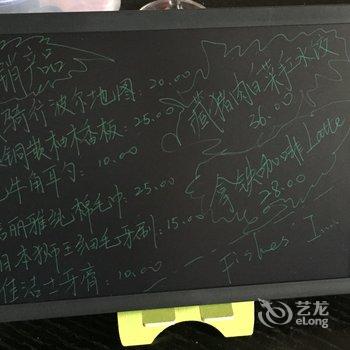 销产品
骑行波尔地图:20.00
铜散柚香板:25.00
牛角耳勺: 10.00
丽雅纯棉毛巾:25.00
日本狮王细毛牙刷:15.00
佳洁士牙膏: 10.00
藏猪肉白菜红水饺
36.00
拿铁咖啡 Latte
28.00
Fishes I
艺龙
eLong